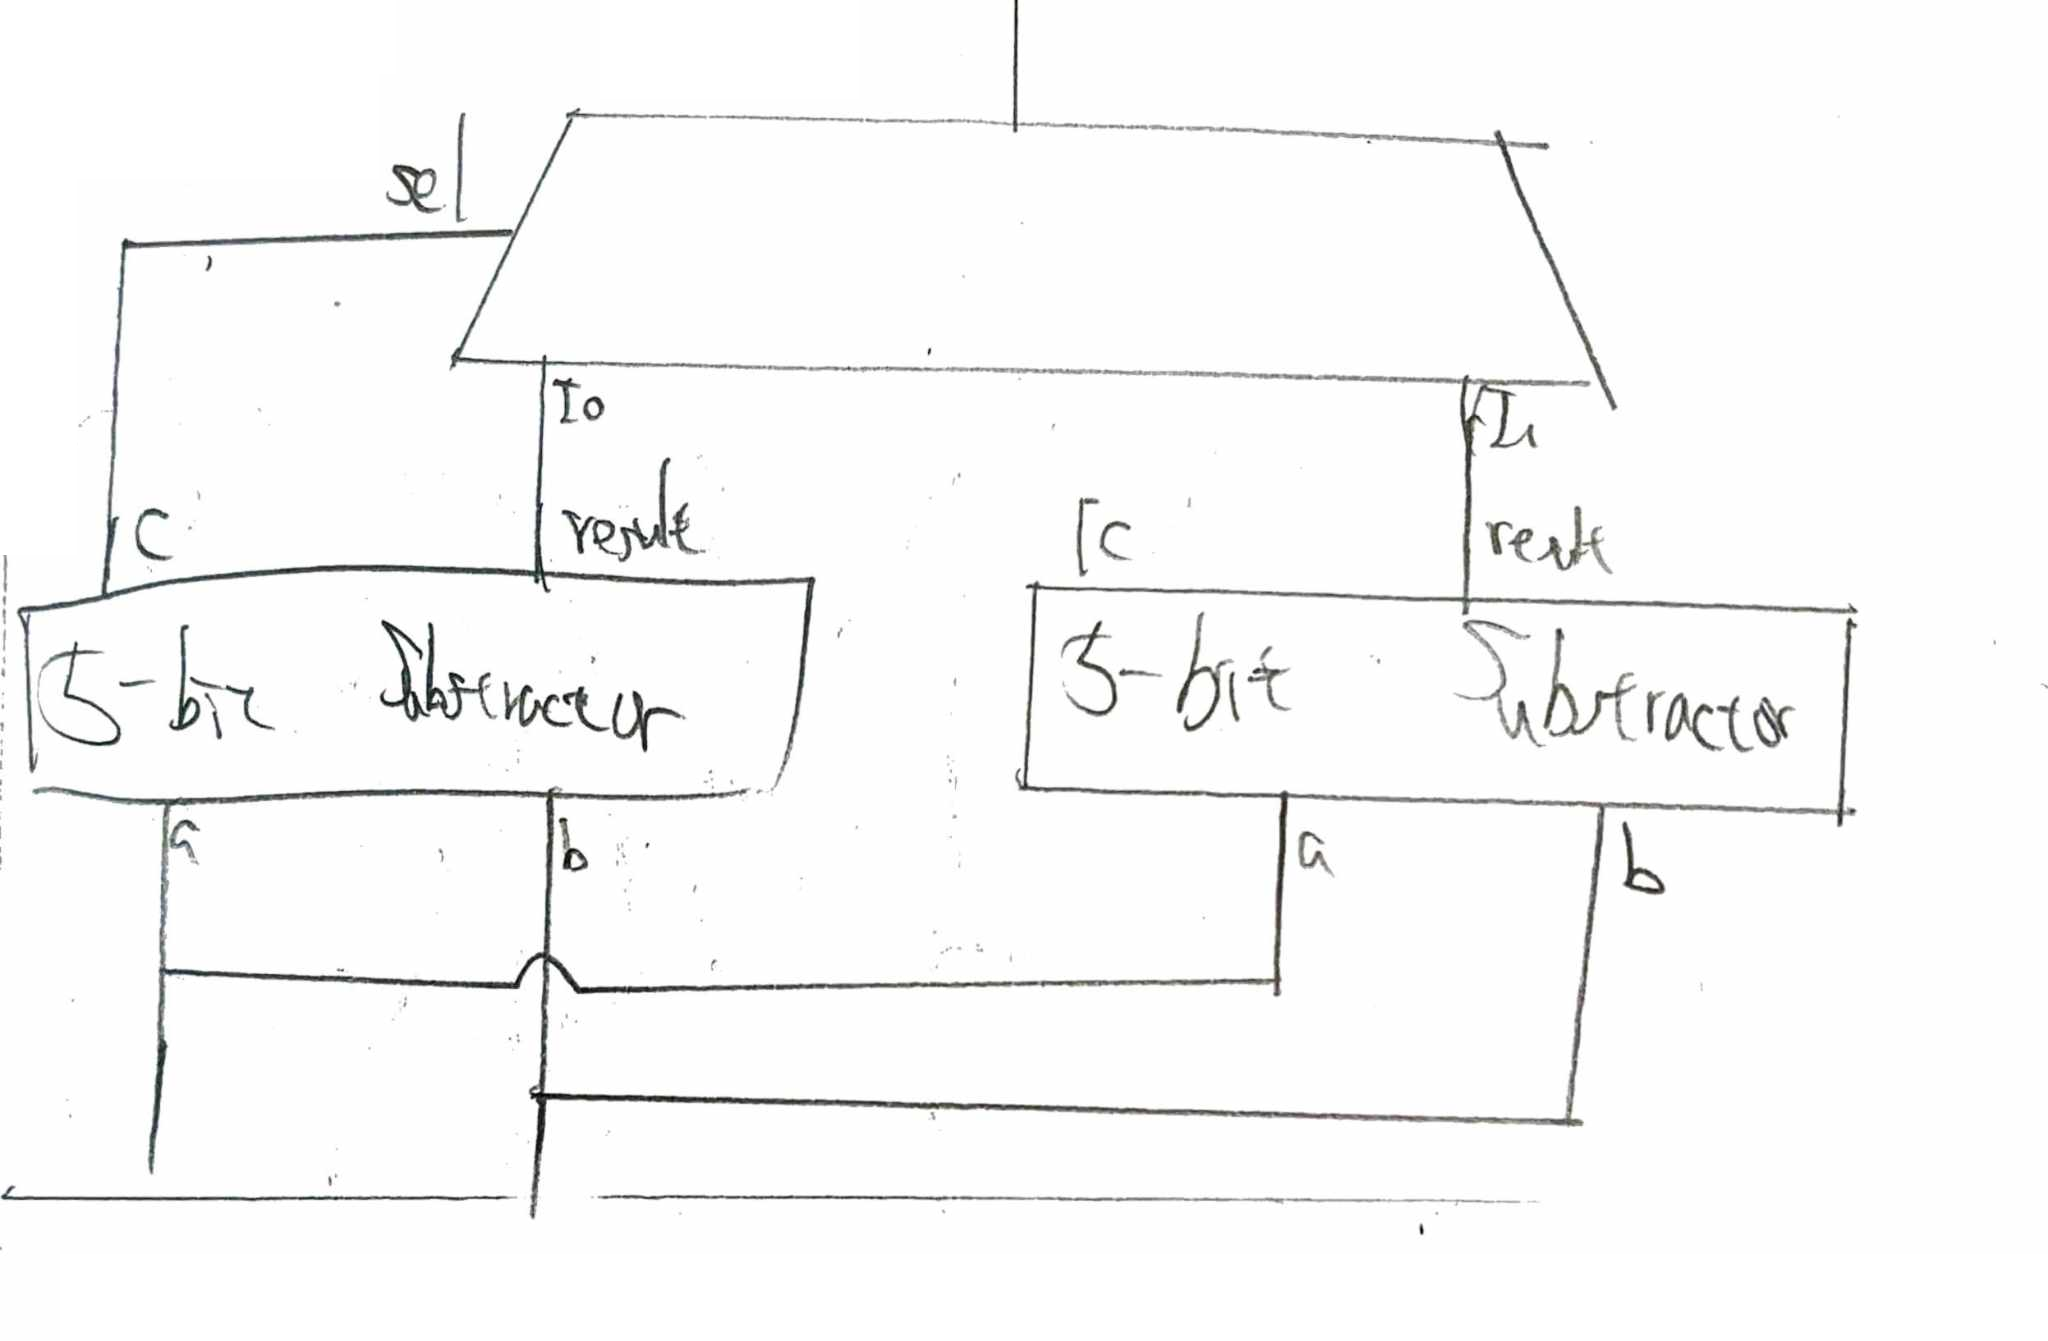 sel
I0 I1
C result C result
5-bit Subtractor 5-bit Subtractor
a b a b